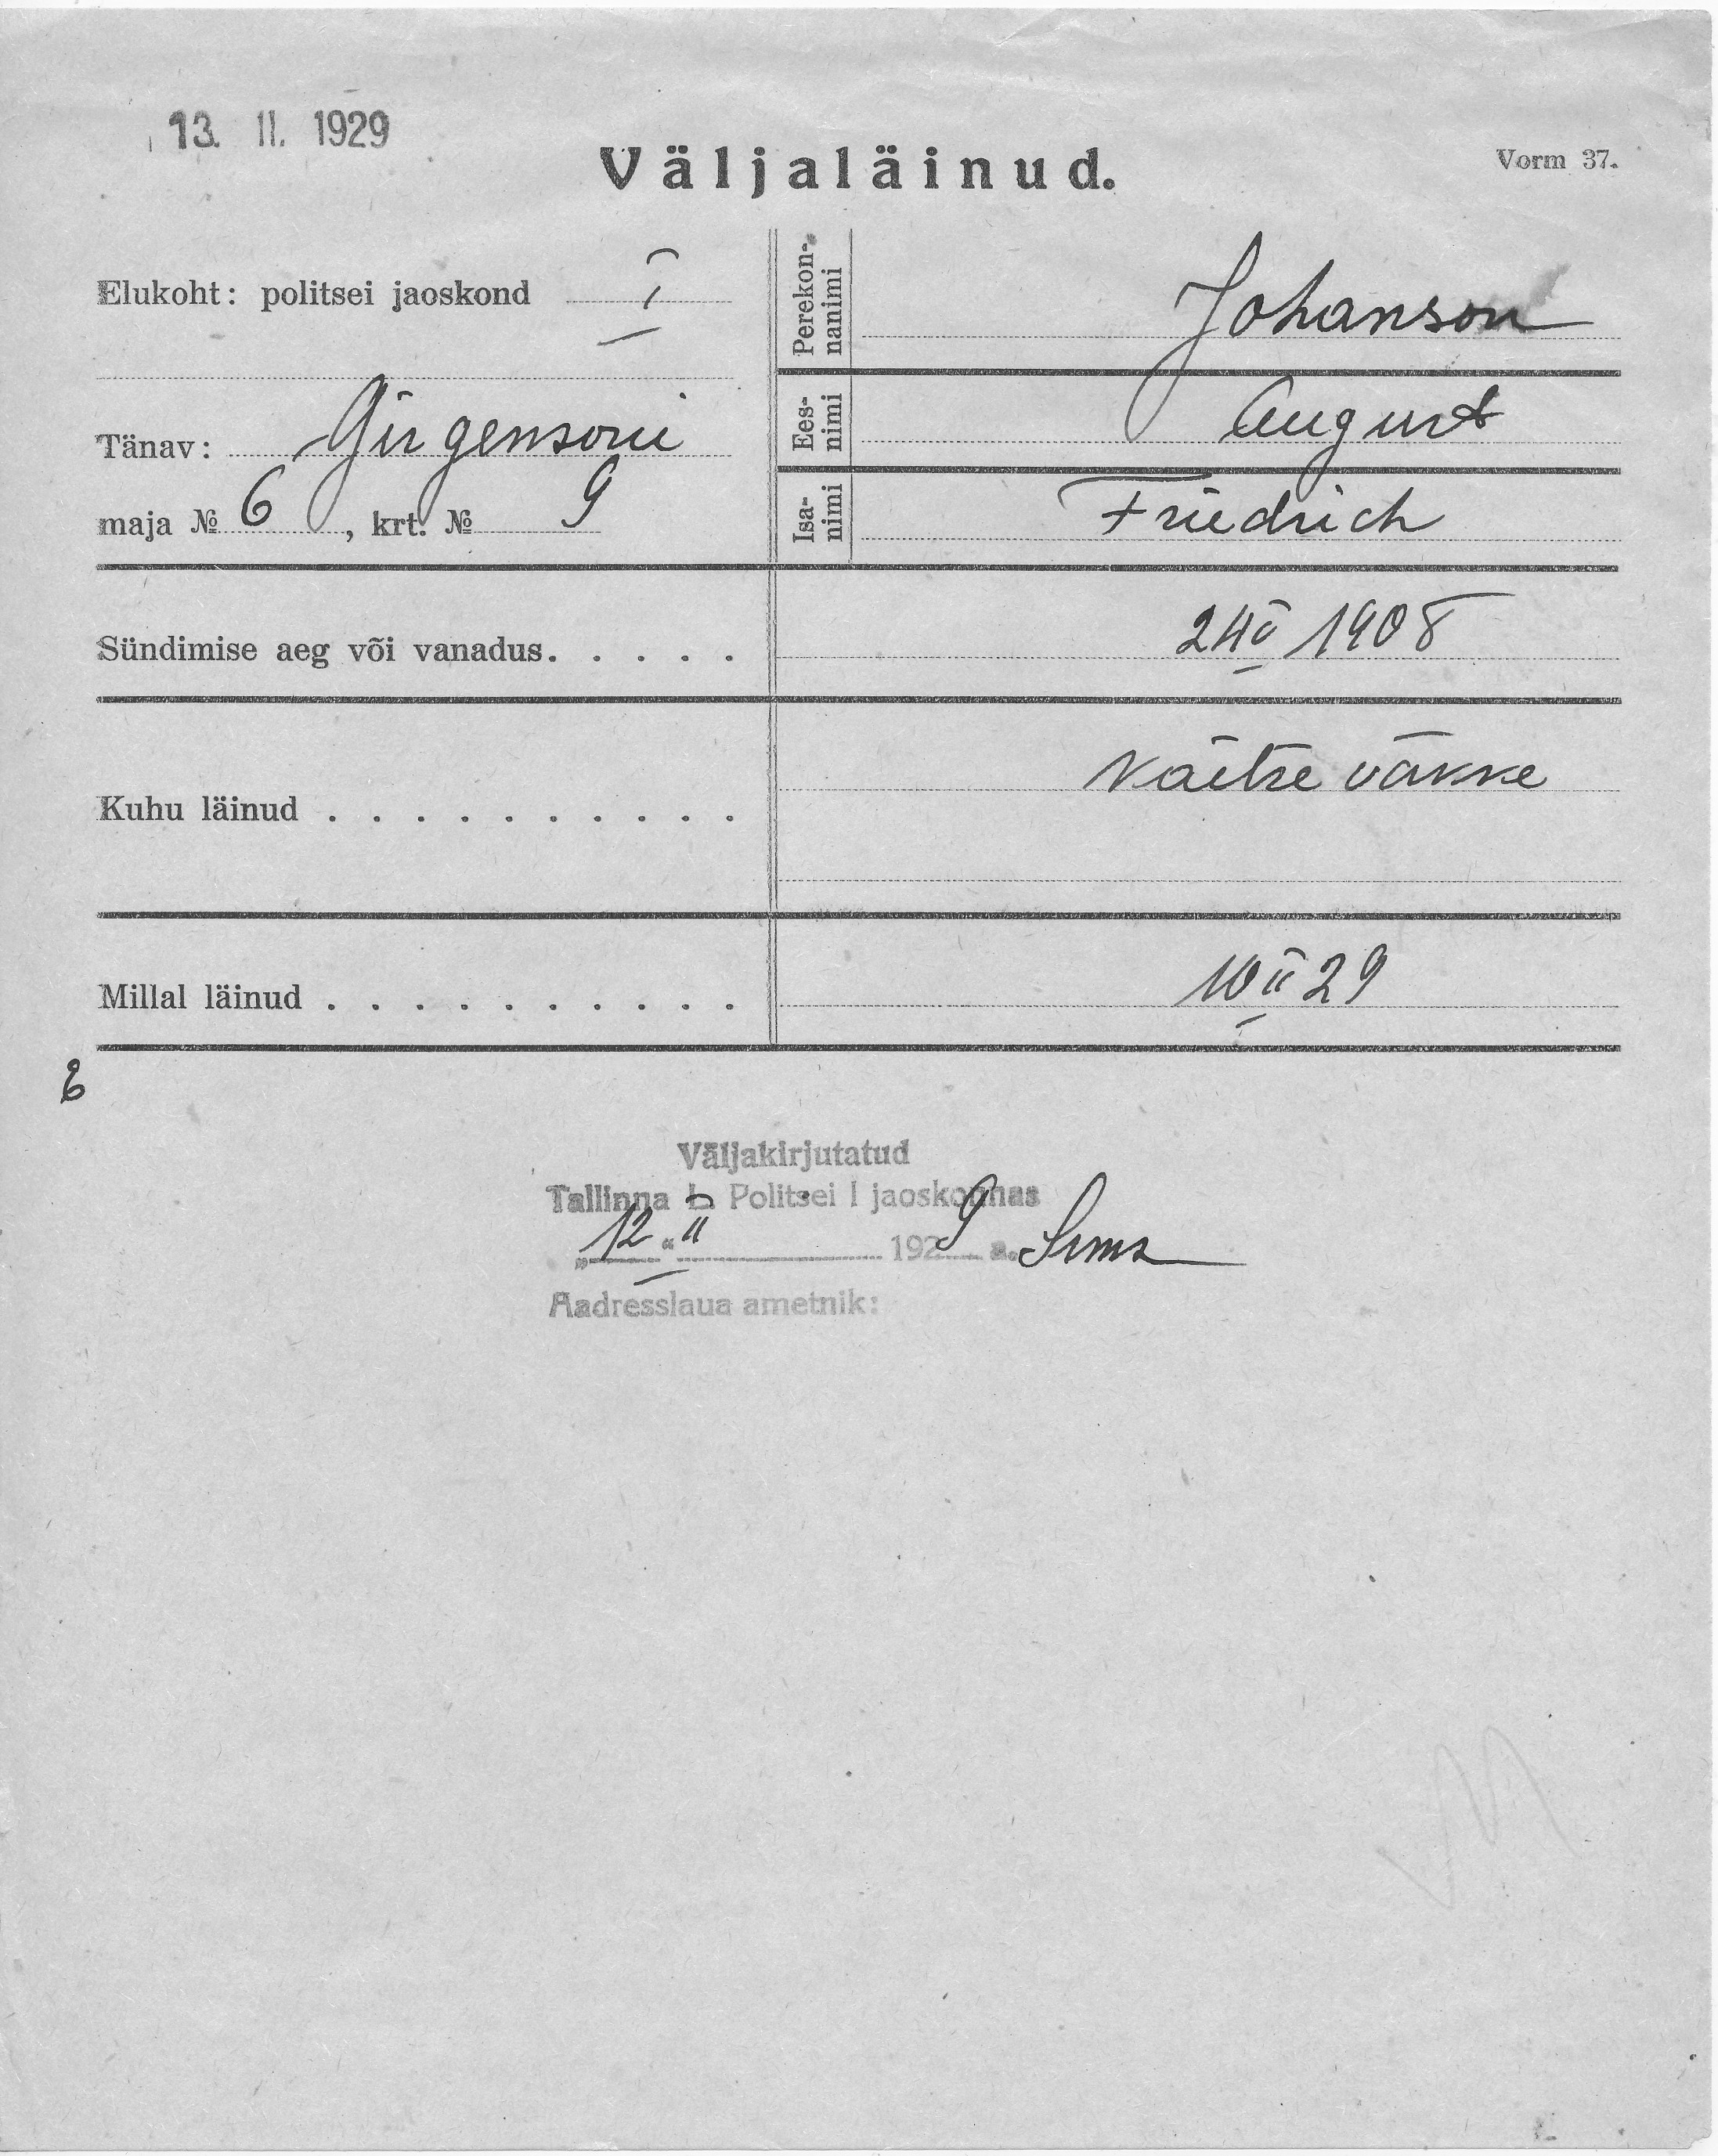 13. II. 1929
Väljaläinud.
Vorm 37.
Elukoht: politsei jaoskond I
Tänav: Girgensoni
maja № 6, krt. № 9
Perekon-
nanimi
Johanson
Ees-
nimi
August
Isa-
nimi
Friedrich
Sündimise aeg või vanadus. . . . . 24 V 1908
Kuhu läinud . . . . . . . . . . . Kaitse väkke
Millal läinud . . . . . . . . . . 10 II 29
Väljakirjutatud
Tallinna L. Politsei I jaoskonnas
„12“ II 1929 a.
Aadresslaua ametnik: